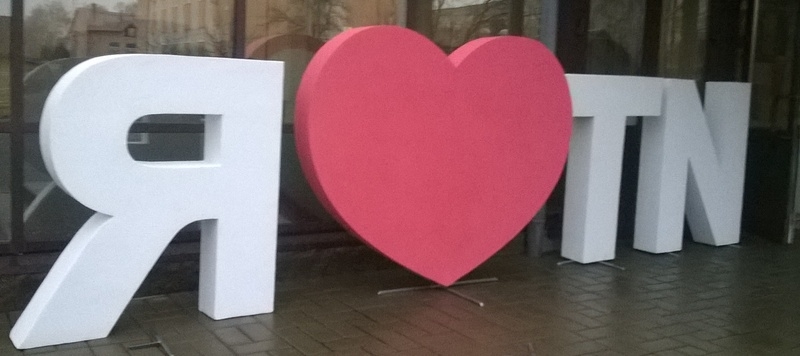 Я ❤ TN